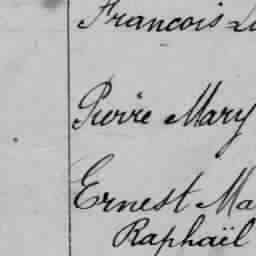 Francois Lu
Pierre Mary
Ernest Ma
Raphaël